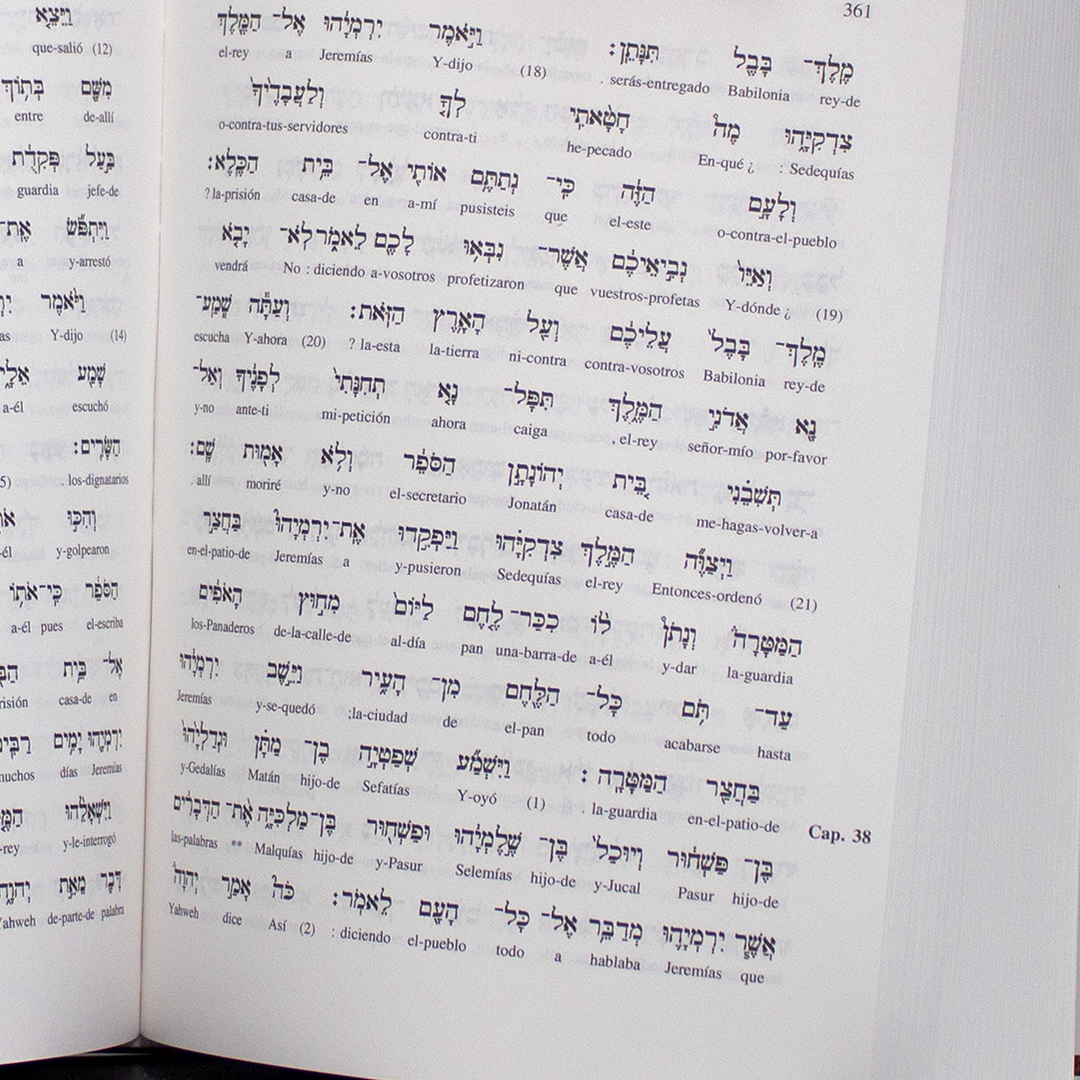 וַיֵּצֵא
que-salió (12)
מִשָּׁם בְּתוֹךְ
entre de-allí
בַּעַל פְּקִדֻת
guardia jefe-de
וַיִּתְפֹּשׂ אֶת־
a y-arrestó
וַיֹּאמֶר
Y-dijo (14)
שָׁמַע
a-él escuchó
הַשָּׂרִים׃
. los-dignatarios
וְהִכּוּ
y-golpearon
הַסֹּפֵר כִּי־אֹתוֹ
a-él pues el-escriba
אֶל־ בֵּית
casa-de en
יִרְמְיָהוּ יָמִים
días Jeremías
וַיִּשְׁאָלֵהוּ
y-le-interrogó
דָּבָר מֵאֵת
de-parte-de palabra
361
מֶלֶךְ־ בָּבֶל תִּנָּתֵן׃ וַיֹּאמֶר יִרְמְיָהוּ אֶל־ הַמֶּלֶךְ
el-rey a Jeremías Y-dijo (18) . serás-entregado Babilonia rey-de
צִדְקִיָּהוּ מֶה חָטָאתִי לְךָ וְלַעֲבָדֶיךָ
o-contra-tus-servidores contra-ti he-pecado En-qué ¿ : Sedequías
וְלָעָם הַזֶּה כִּי־ נְתַתֶּם אוֹתִי אֶל־ בֵּית הַכֶּלֶא׃
? la-prisión casa-de en a-mí pusisteis que el-este o-contra-el-pueblo
וְאַיּוֹ נְבִיאֵיכֶם אֲשֶׁר־ נִבְּאוּ לָכֶם לֵאמֹר לֹא־ יָבֹא
vendrá No : diciendo a-vosotros profetizaron que vuestros-profetas Y-dónde ¿ (19)
מֶלֶךְ־ בָּבֶל עֲלֵיכֶם וְעַל הָאָרֶץ הַזֹּאת׃ וְעַתָּה שְׁמַע־
escucha Y-ahora (20) ? la-esta la-tierra ni-contra contra-vosotros Babilonia rey-de
נָא אֲדֹנִי הַמֶּלֶךְ תִּפָּל־ נָא תְחִנָּתִי לְפָנֶיךָ וְאַל־
y-no ante-ti mi-petición ahora caiga , el-rey señor-mío por-favor
תְּשִׁבֵנִי בֵּית יְהוֹנָתָן הַסֹּפֵר וְלֹא אָמוּת שָׁם׃
. allí moriré y-no el-secretario Jonatán casa-de me-hagas-volver-a
וַיְצַוֶּה הַמֶּלֶךְ צִדְקִיָּהוּ וַיַּפְקִדוּ אֶת־יִרְמְיָהוּ בַּחֲצַר
en-el-patio-de Jeremías a y-pusieron Sedequías el-rey Entonces-ordenó (21)
הַמַּטָּרָה וְנָתֹן לוֹ כִכַּר־ לֶחֶם לַיּוֹם מִחוּץ הָאֹפִים
los-Panaderos de-la-calle-de al-día pan una-barra-de a-él y-dar la-guardia
עַד־ תֹּם כָּל־ הַלֶּחֶם מִן־ הָעִיר וַיֵּשֶׁב יִרְמְיָהוּ
Jeremías y-se-quedó ;la-ciudad de el-pan todo acabarse hasta
בַּחֲצַר הַמַּטָּרָה׃ וַיִּשְׁמַע שְׁפַטְיָה בֶן־ מַתָּן וּגְדַלְיָהוּ
y-Gedalías Matán hijo-de Sefatías Y-oyó (1) . la-guardia en-el-patio-de Cap. 38
בֶּן־ פַּשְׁחוּר וְיוּכַל בֶּן־ שֶׁלֶמְיָהוּ וּפַשְׁחוּר בֶּן־מַלְכִּיָּה אֶת־ הַדְּבָרִים
las-palabras ** Malquías hijo-de y-Pasur Selemías hijo-de y-Jucal Pasur hijo-de
אֲשֶׁר יִרְמְיָהוּ מְדַבֵּר אֶל־ כָּל־ הָעָם לֵאמֹר׃ כֹּה אָמַר יְהוָה
Yahweh dice Así (2) : diciendo el-pueblo todo a hablaba Jeremías que